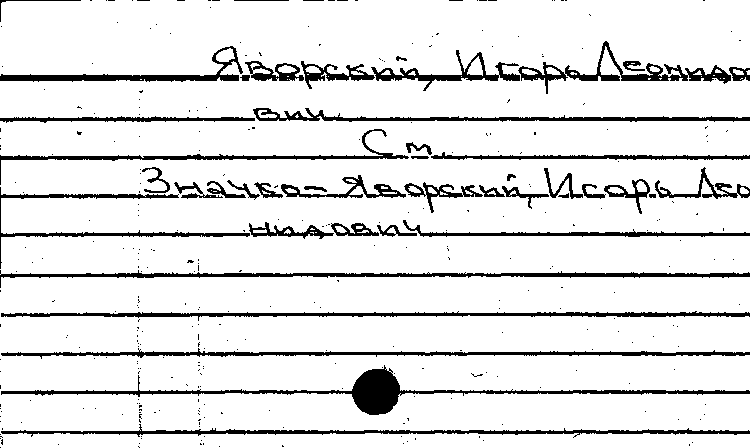 Яворский, Игорь Леонидо
вич.
См.
Значко-Яворский, Игорь Лео
нидович